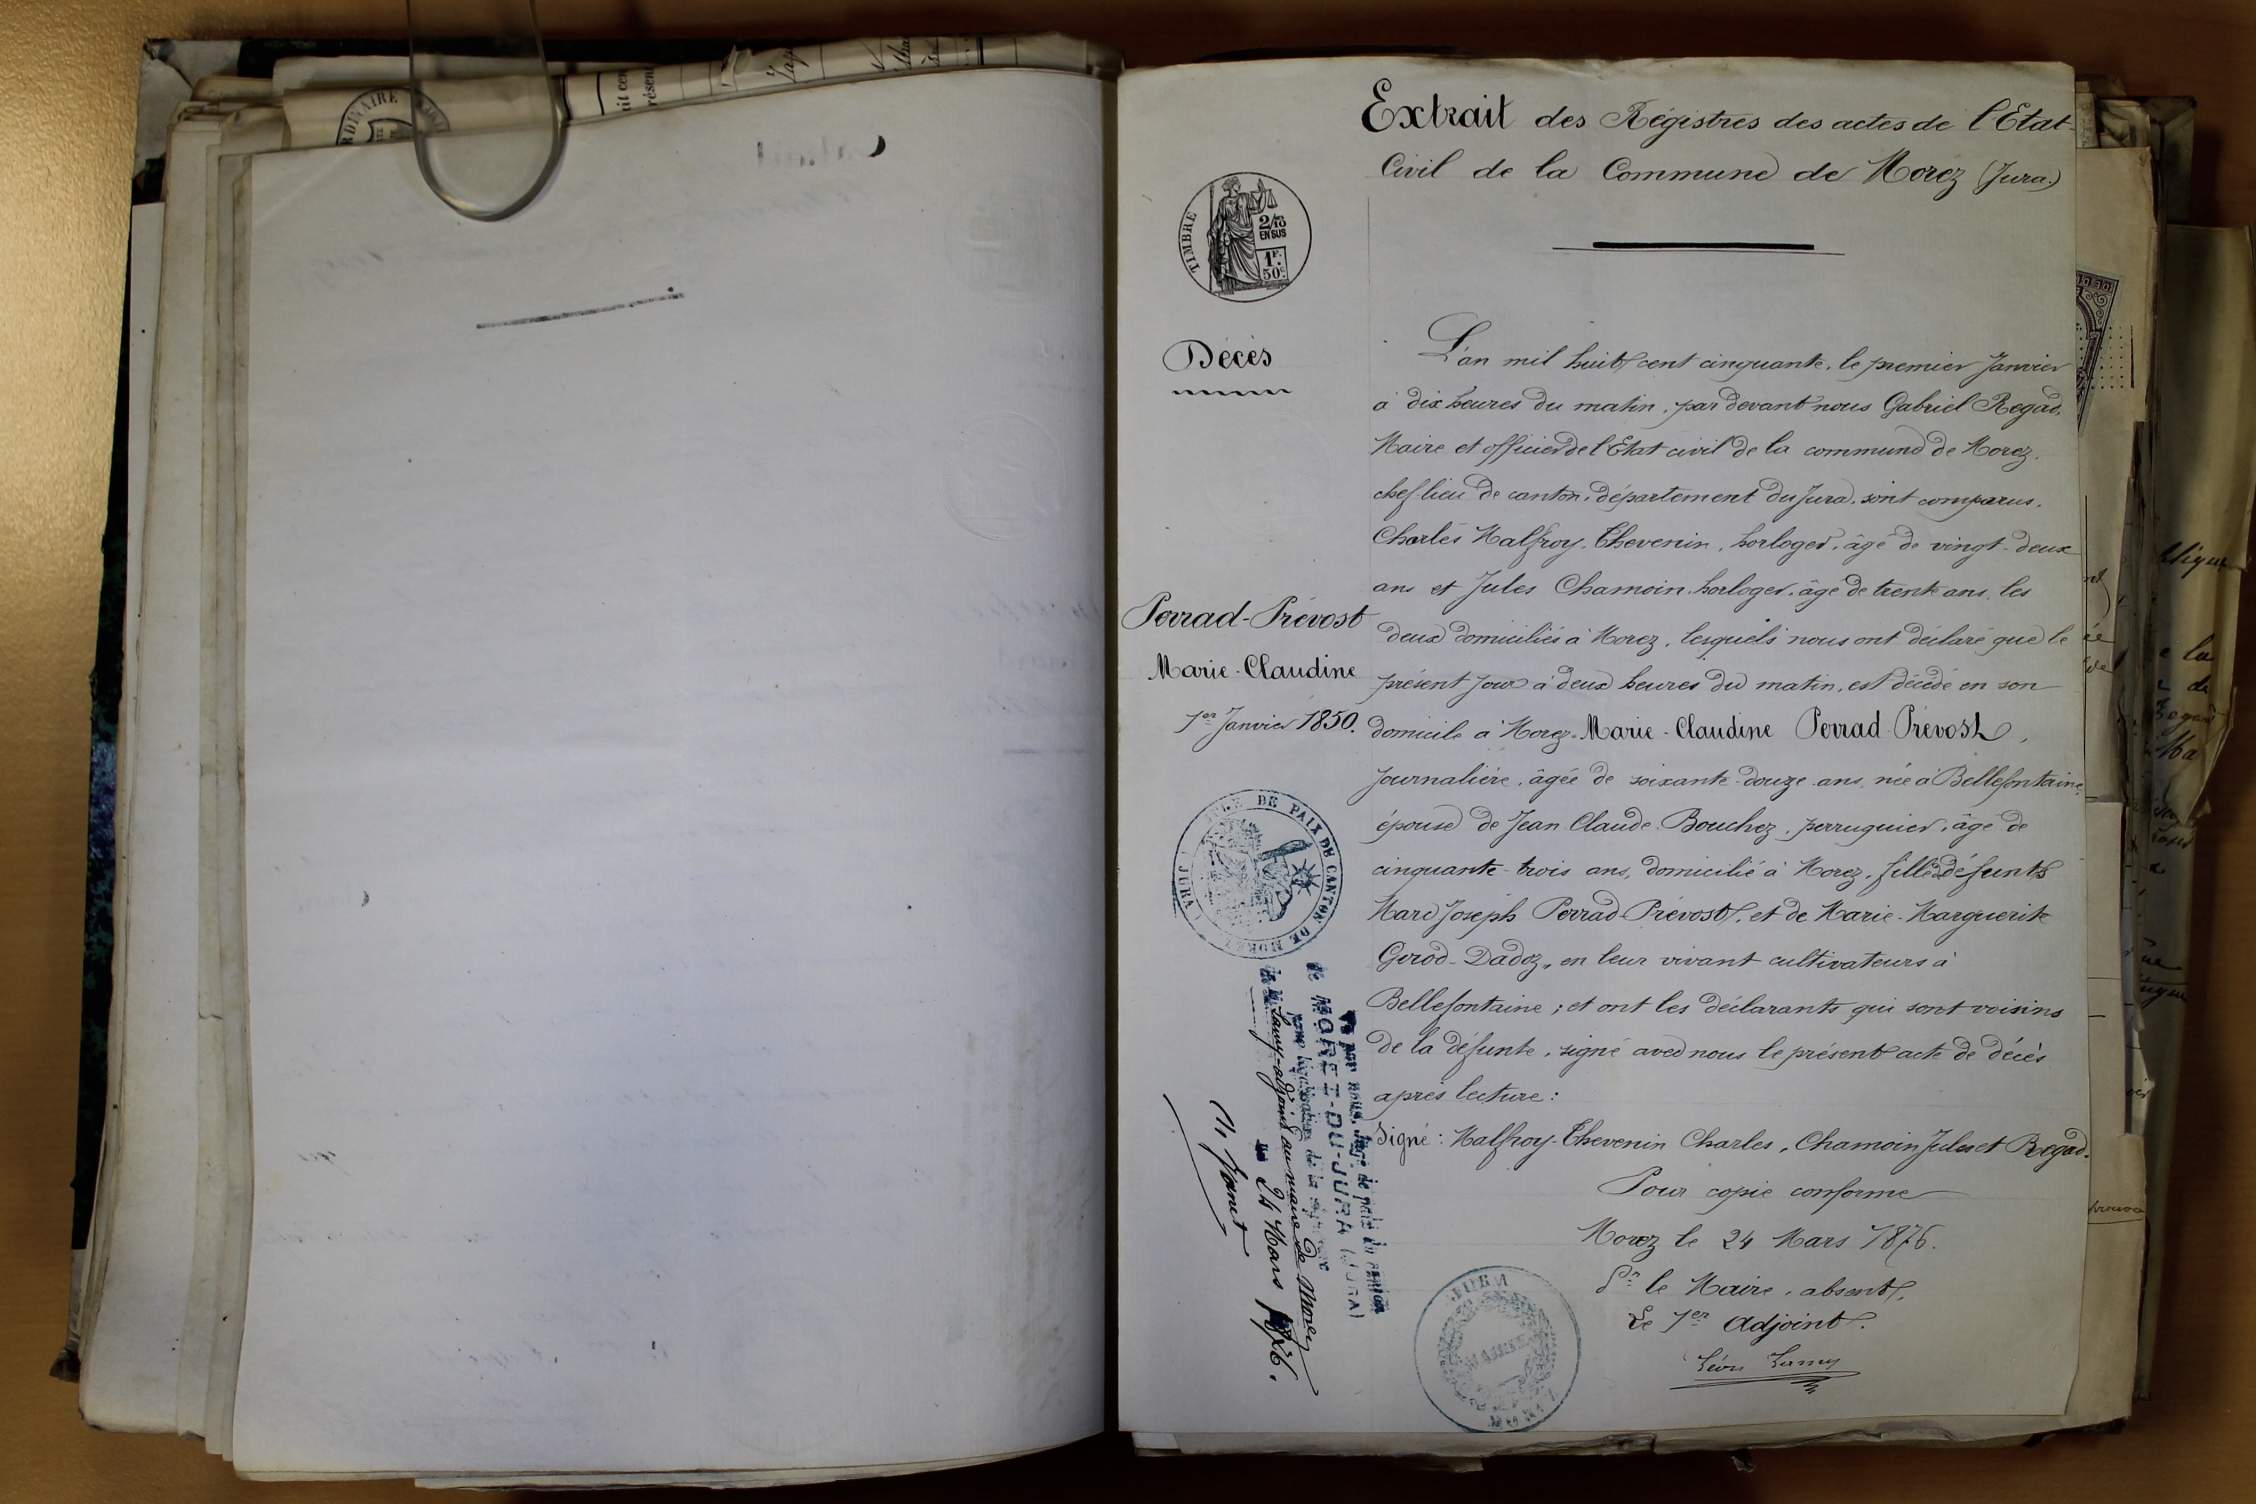 Extrait des Régistres des actes de l'Etat-
Civil de la Commune de Morez (Jura)
TIMBRE
2/10
EN SUS
1F.
50c
Décès
L'an mil huit cent cinquante, le premier Janvier
à dix heures du matin, par devant nous Gabriel Regad,
Maire et officier de l'Etat civil de la commune de Morez,
chef-lieu de canton, département du Jura, sont comparus,
Charles Malfroy-Thevenin, horloger, âgé de vingt-deux
ans et Jules Chamoin, horloger, âgé de trente ans, les
deux domiciliés à Morez, lesquels nous ont déclaré que le
présent jour à deux heures du matin, est décédé en son
domicile à Morez, Marie-Claudine Perrad-Prévost,
journalière, âgée de soixante-douze ans, née à Bellefontaine,
épouse de Jean Claude Bouchez, perruquier, âgé de
cinquante-trois ans, domicilié à Morez, fille de défunts
Marc Joseph Perrad-Prévost, et de Marie-Marguerite
Girod-Dadoz, en leur vivant cultivateurs à
Bellefontaine ; et ont les déclarants qui sont voisins
de la défunte, signé avec nous le présent acte de décès
après lecture :
Signé : Malfroy-Thevenin Charles, Chamoin Jules et Regad.
Pour copie conforme
Morez le 24 Mars 1876.
Pr le Maire, absent,
Le 1er Adjoint.
Léon Lamy
Perrad-Prévost
Marie-Claudine
1er Janvier 1850.
DE PAIX DU CANTON DE MOREZ (JURA)
Vu par nous, Juge de paix du canton
de MOREZ-DU-JURA (JURA)
pour légalisation de la signature
de M. Lamy-adjoint au maire de Morez
le 24 Mars 1876.
MAIRIE